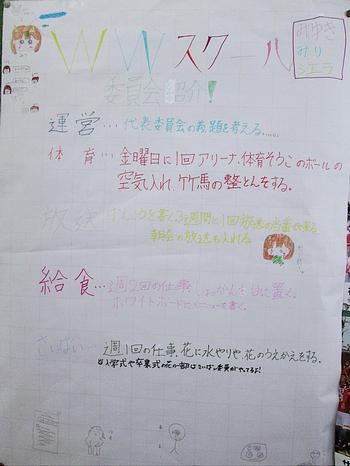 WWスクール
みゆき
みり
シエラ
委員会紹介!
運営…代表委員会の議題を考える……
体育…金曜日に1回アリーナ、体育そうこのボールの
空気入れ、竹馬の整とんをする。
放送
週間に1回放送の当番が来る
朝会の放送も入れる
給食…週2回の仕事
台に置く。
ホワイトボードにメニューを書く。
さいばい…週1回の仕事、花に水やりや、花のうえかえをする。
※入学式や卒業式の花の一部はさいばい委員がやってるよ!